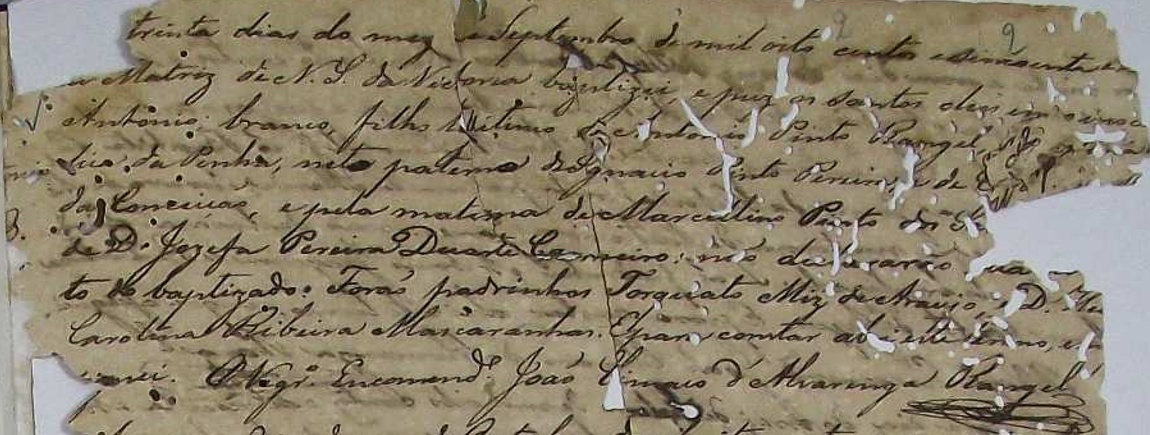 2
trinta dias do mez de Septembro de mil oito centos e sincoenta e
a Matriz de N. S. da Victoria baptizei, e puz os Santos oleos, em o inoc
Antonio, branco, filho legitimo de Antonio Pinto Rangel, e de
da Penha, neto paterno de Ignacio Pinto Pereira, e de
da Conceicão, e pela materna de Marcellino Pinto
de D. Jozefa Pereira Duarte Carneiro: não declararão
to do baptizado: Forão padrinhos Torquato Miz de Araujo, e D.
Carolina Ribeira Mascaranhas. E para constar abri este termo, e
O Vigr.º Encomend.º João Climaco d'Alvarenga Rangel